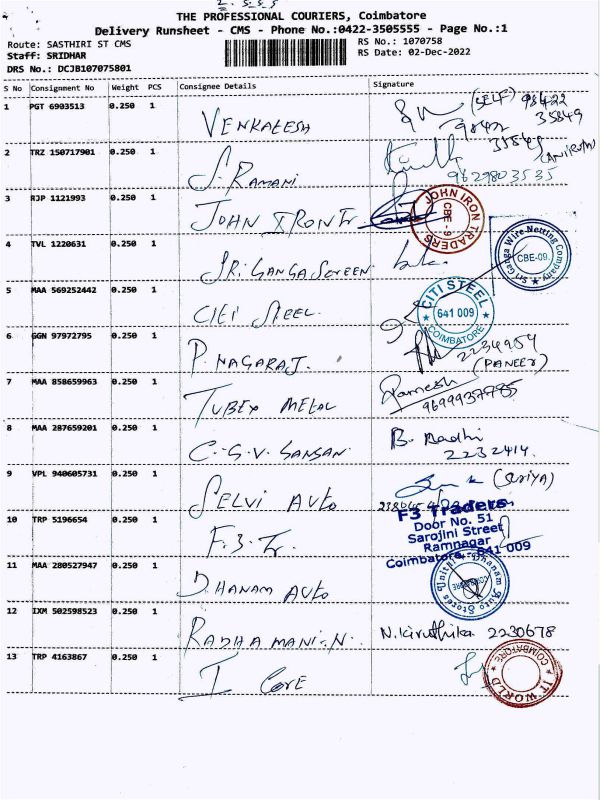 THE PROFESSIONAL COURIERS, Coimbatore
Delivery Runsheet - CMS - Phone No.:0422-3505555 - Page No.:1
Route: SASTHIRI ST CMS
RS No.: 1070758
Staff: SRIDHAR
RS Date: 02-Dec-2022
DRS No.: DCJB107075801
S No Consignment No Weight PCS Consignee Details Signature
1 PGT 6903513 0.250 1 VENKATESH (SELF) 98422 35849
9842 35849
2 TRZ 150717901 0.250 1 S. RAMANI
9629803535
3 RJP 1121993 0.250 1 JOHN IRON Tr JOHN IRON TRADERS CBE-9
4 TVL 1220631 0.250 1 SRI GANGA SCREEN Sri Ganga Wire Netting Company CBE-09.
5 MAA 569252442 0.250 1 CITI STEEL CITI STEEL 641 009 COIMBATORE
6 GGN 97972795 0.250 1 P. NAGARAJ. 2234954
(PANEER)
7 MAA 858659963 0.250 1 TUBEX METAL Ramesh
9699937785
8 MAA 287659201 0.250 1 C.G.V. SANSAN. B. Aadhi
2232414.
9 VPL 940605731 0.250 1 SELVI AUTO (SURIYA)
10 TRP 5196654 0.250 1 F.3. Tr. F3 Traders
Door No. 51
Sarojini Street
Ramnagar
Coimbatore - 641 009
11 MAA 280527947 0.250 1 DHANAM AUTO Dhanam Auto Stores COIMBATORE
12 IXM 502598523 0.250 1 RADHAMANI.N. N. Kiruthika 2230678
13 TRP 4163867 0.250 1 I CORE IT WORLD COIMBATORE